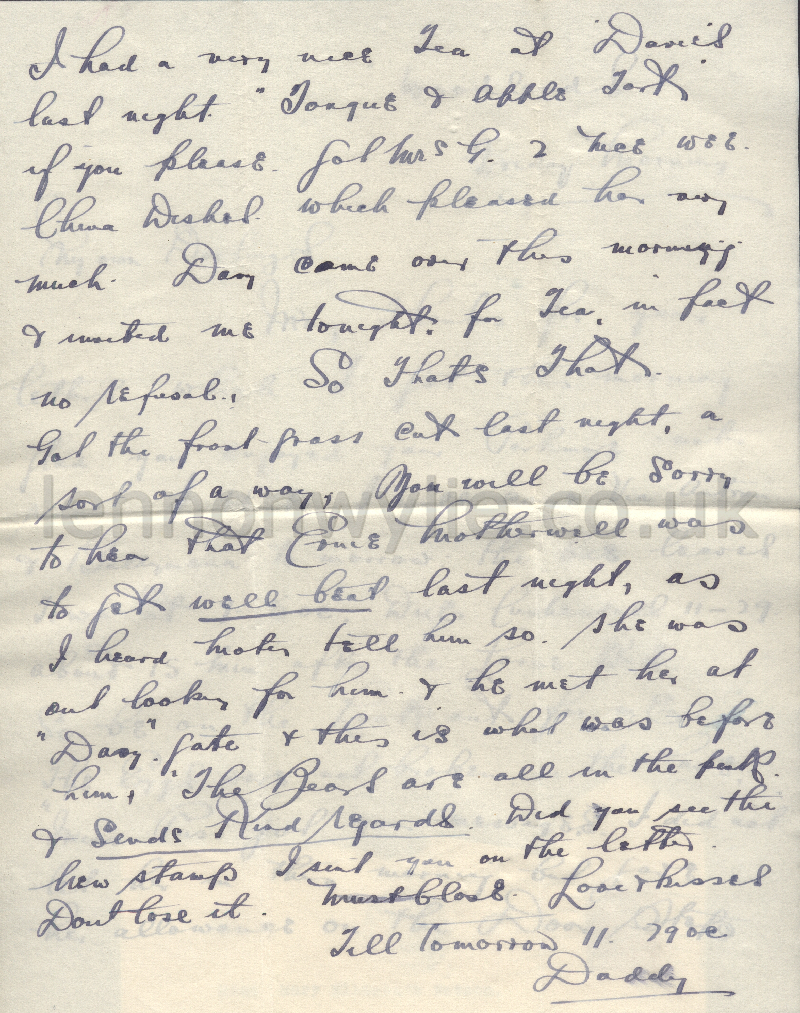 I had a very nice Tea at Davies
last night. "Tongue & Apple Tart"
if you please. Got Mrs G. 2 nice wee.
China Dishes. which pleased her very
much. Davy came over this morning
& invited me tonight. for Tea, in fact
no refusal., So Thats That.
Got the front grass cut last night, a
sort of a way, You will be Sorry
to hear that Ernie Motherwell was
to get well beat last night, as
I heard Mother tell him so. She was
out looking for him. & he met her at
"Davy" gate & this is what was before
him, "The Bears are all in the park.
& Sends Kind Regards. Did you see the
new stamp I sent you on the letter.
Dont lose it. Must Close. Love & kisses
Till Tomorrow 11.
Daddy
lennonwylie.co.uk